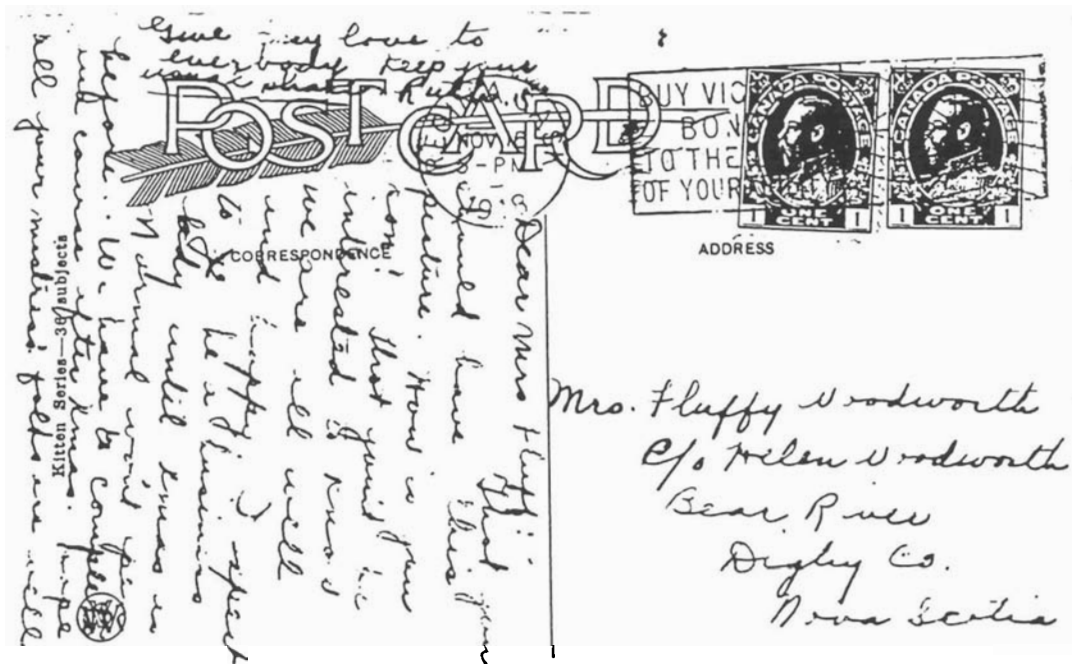 Give my love to
everybody keep your
POST CARD
NOV
PM
19
BUY VIC
BON
TO THE
OF YOUR
CANADA POSTAGE
1 ONE CENT 1
CANADA POSTAGE
1 ONE CENT 1
CORRESPONDENCE
ADDRESS
Kitten Series—36 subjects
Dear Mrs Fluff:-
That
would have this your
picture. How is your
Con. that. Guind you
intrested to know
we are all well
and happy. I spect
to be
busy until Xmas in
Normal wont
before. We have to complete
and course after Xmas. hope
all your mistres' folks are well
Mrs. Fluffy Woodworth
c/o Helen Woodworth
Bear River
Digby Co.
Nova Scotia